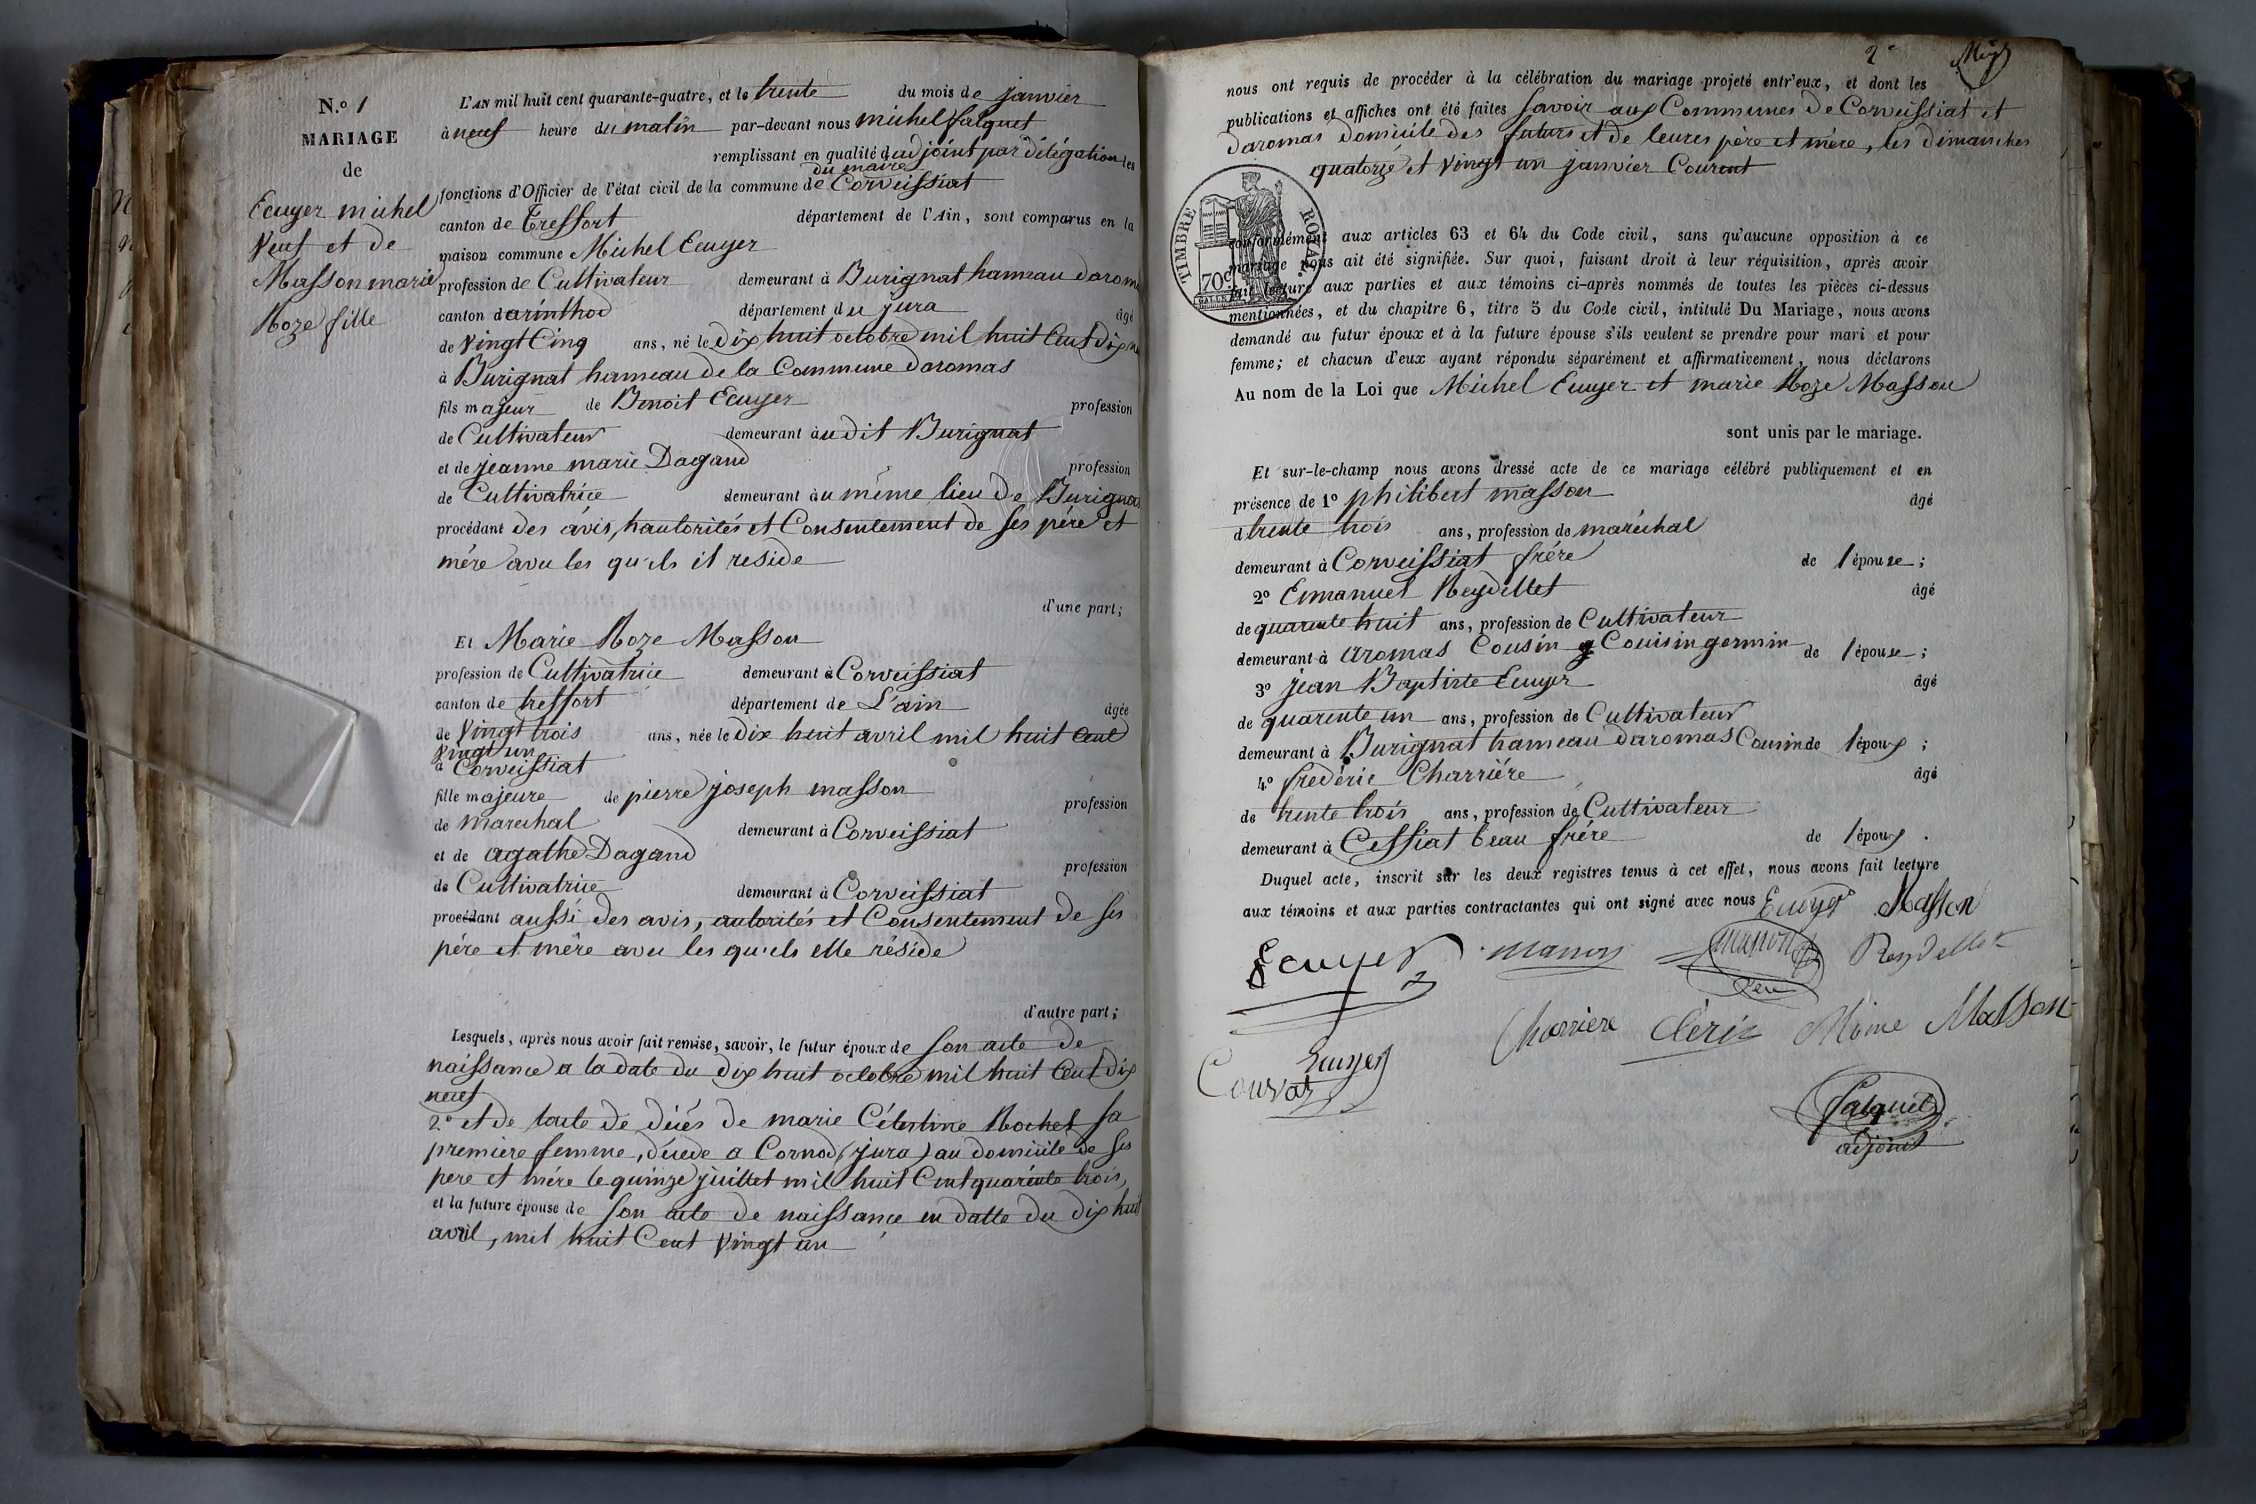 N.º 1
MARIAGE
de
Ecuyer michel
Veuf et de
Masson marie
Roze fille
L'AN mil huit cent quarante-quatre, et le trente du mois de janvier
à neuf heure du matin par-devant nous michel falquet
remplissant en qualité d'adjoint par délégation les
du maire
fonctions d'Officier de l'état civil de la commune de Corveissiat
canton de Treffort département de l'Ain, sont comparus en la
maison commune Michel Ecuyer
profession de Cultivateur demeurant à Burignat hameau darom
canton d'arinthod département du jura âgé
de Vingt Cinq ans, né le dix huit octobre mil huit Cent Dix n
à Burignat hameau de la Commune daromas
fils majeur de Benoit Ecuyer profession
de Cultivateur demeurant audit Burignat
et de jeanne marie Dagand profession
de Cultivatrice demeurant au même lieu de Burigna
procédant des avis, hautorités et Consentement de ses père et
mère avec les qu'ils il reside
d'une part;
Et Marie Roze Masson
profession de Cultivatrice demeurant à Corveissiat
canton de treffort département de L'ain âgée
de Vingt trois ans, née le dix huit avril mil huit Cent
Vingt un
à Corveissiat
fille majeure de pierre joseph masson profession
de marechal demeurant à Corveissiat
et de agathe Dagand profession
de Cultivatrice demeurant à Corveissiat
procédant aussi des avis, autorités et Consentement de ses
père et mère avec les qu'els elle réside
d'autre part;
Lesquels, après nous avoir fait remise, savoir, le futur époux de son acte de
naissance a la date du dix huit octobre mil huit Cent dix
neuf
2.º et de lacte de décés de marie Célestine Rochet sa
premiere femme, décede a Cornod (jura) au domicile de ses
pere et mére le quinze juillet mil huit Cent quarente trois,
et la future épouse de son acte de naissance en datte du dix huit
avril, mil huit Cent Vingt un
2e
nous ont requis de procéder à la célébration du mariage projeté entr'eux, et dont les
publications et affiches ont été faites Savoir aux Communes de Corveissiat et
daromas domicile des futurs et de leures père et mère, les dimanches
quatorze et Vingt un janvier Courent
TIMBRE ROYAL.
70c
conformément aux articles 63 et 64 du Code civil, sans qu'aucune opposition à ce
mariage nous ait été signifiée. Sur quoi, faisant droit à leur réquisition, après avoir
fait lecture aux parties et aux témoins ci-après nommés de toutes les pièces ci-dessus
mentionnées, et du chapitre 6, titre 5 du Code civil, intitulé Du Mariage, nous avons
demandé au futur époux et à la future épouse s'ils veulent se prendre pour mari et pour
femme; et chacun d'eux ayant répondu séparément et affirmativement, nous déclarons
Au nom de la Loi que Michel Ecuyer et marie Roze Masson
sont unis par le mariage.
Et sur-le-champ nous avons dressé acte de ce mariage célébré publiquement et en
présence de 1º philibert masson âgé
d trente trois ans, profession de maréchal
demeurant à Corveissiat frére de l'épouse;
2º Emanuel Reydellet âgé
de quarente huit ans, profession de Cultivateur
demeurant à aromas Cousin g Couisin germin de l'épouse;
3º jean Baptiste Ecuyer âgé
de quarente un ans, profession de Cultivateur
demeurant à Burignat hameau daromas Cousin de l'époux;
4º fredéric Charriére âgé
de trente trois ans, profession de Cultivateur
demeurant à Cessiat beau frére de l'époux.
Duquel acte, inscrit sur les deux registres tenus à cet effet, nous avons fait lecture
aux témoins et aux parties contractantes qui ont signé avec nous Ecuyer Masson
Ecuyer masson masson Reydellet
Charriere clerc Masson
Ecuyer
falquet
adjoint